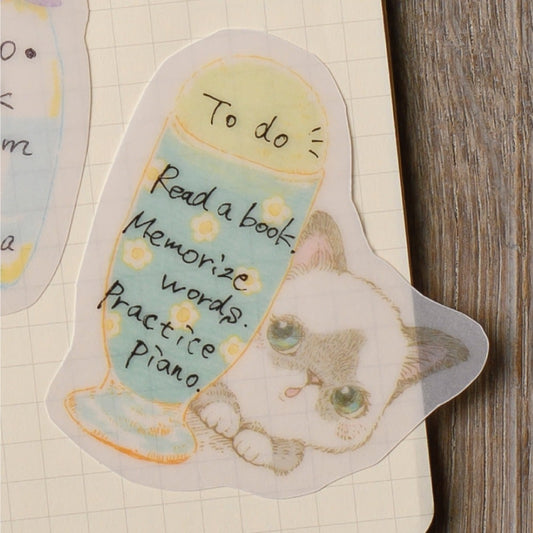 To do
Read a book.
Memorize
words.
Practice
Piano.